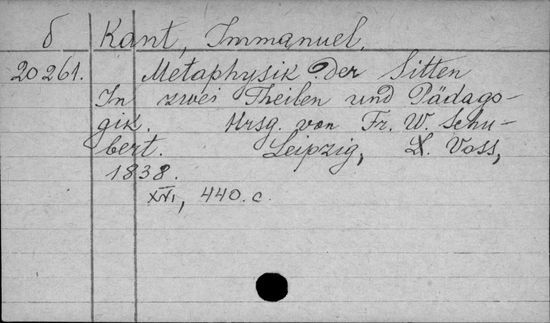 б Kant, Immanuel.
20261. Metaphysik der Sitten
In zwei Theilen und Pädago-
gik. Hrsg. von Fr. W. Schu-
bert. Leipzig, L. Voss,
1838.
XVI, 440 c.